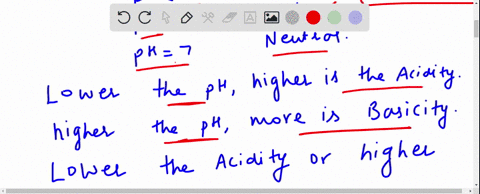 pH = 7 Neutral.
Lower the pH, higher is the Acidity.
higher the pH, more is Basicity.
Lower the Acidity or higher